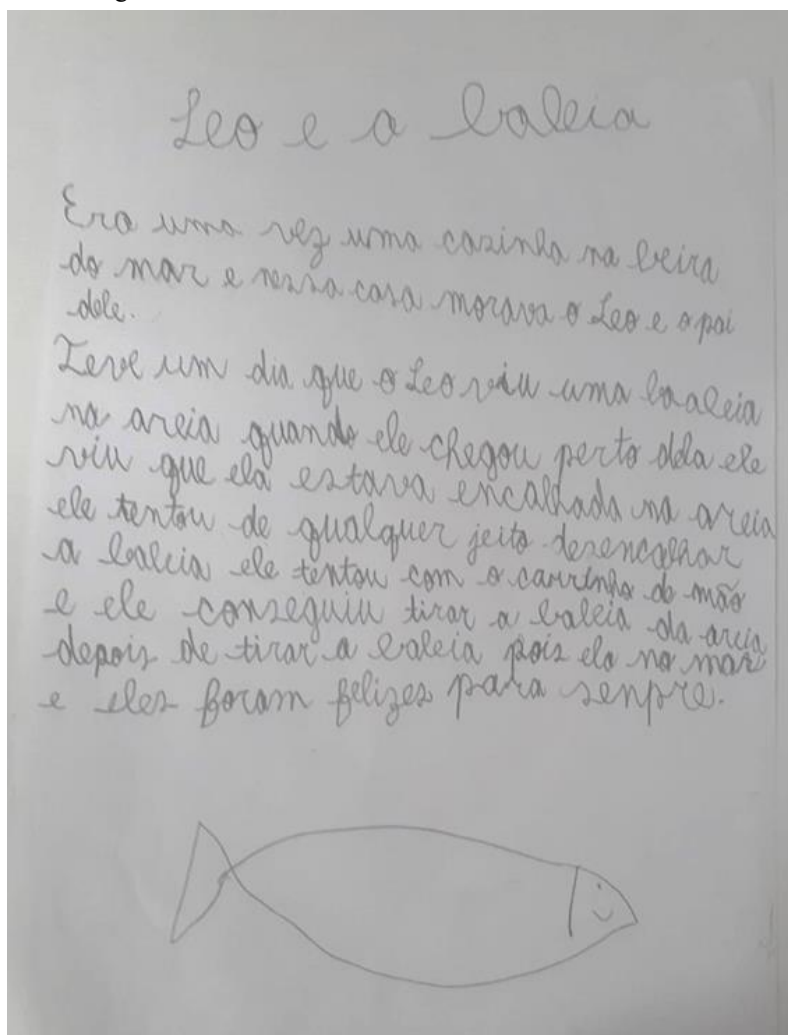 Leo e a baleia
Era uma vez uma casinha na beira
do mar e nessa casa morava o Leo e o pai
dele.
Teve um dia que o Leo viu uma baaleia
na areia quando ele chegou perto dela ele
viu que ela estava encalhada na areia
ele tentou de qualquer jeito desencalhar
a baleia ele tentou com o carrinho de mão
e ele conseguiu tirar a baleia da areia
depois de tirar a baleia pois ela no mar
e eles foram felizes para senpre.